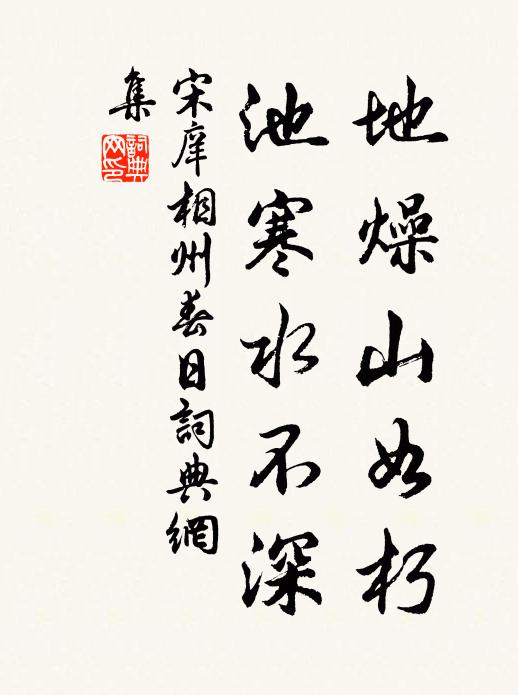 地燥山如朽
池寒水不深
宋庠相州春日詞典網
集
詞典網印